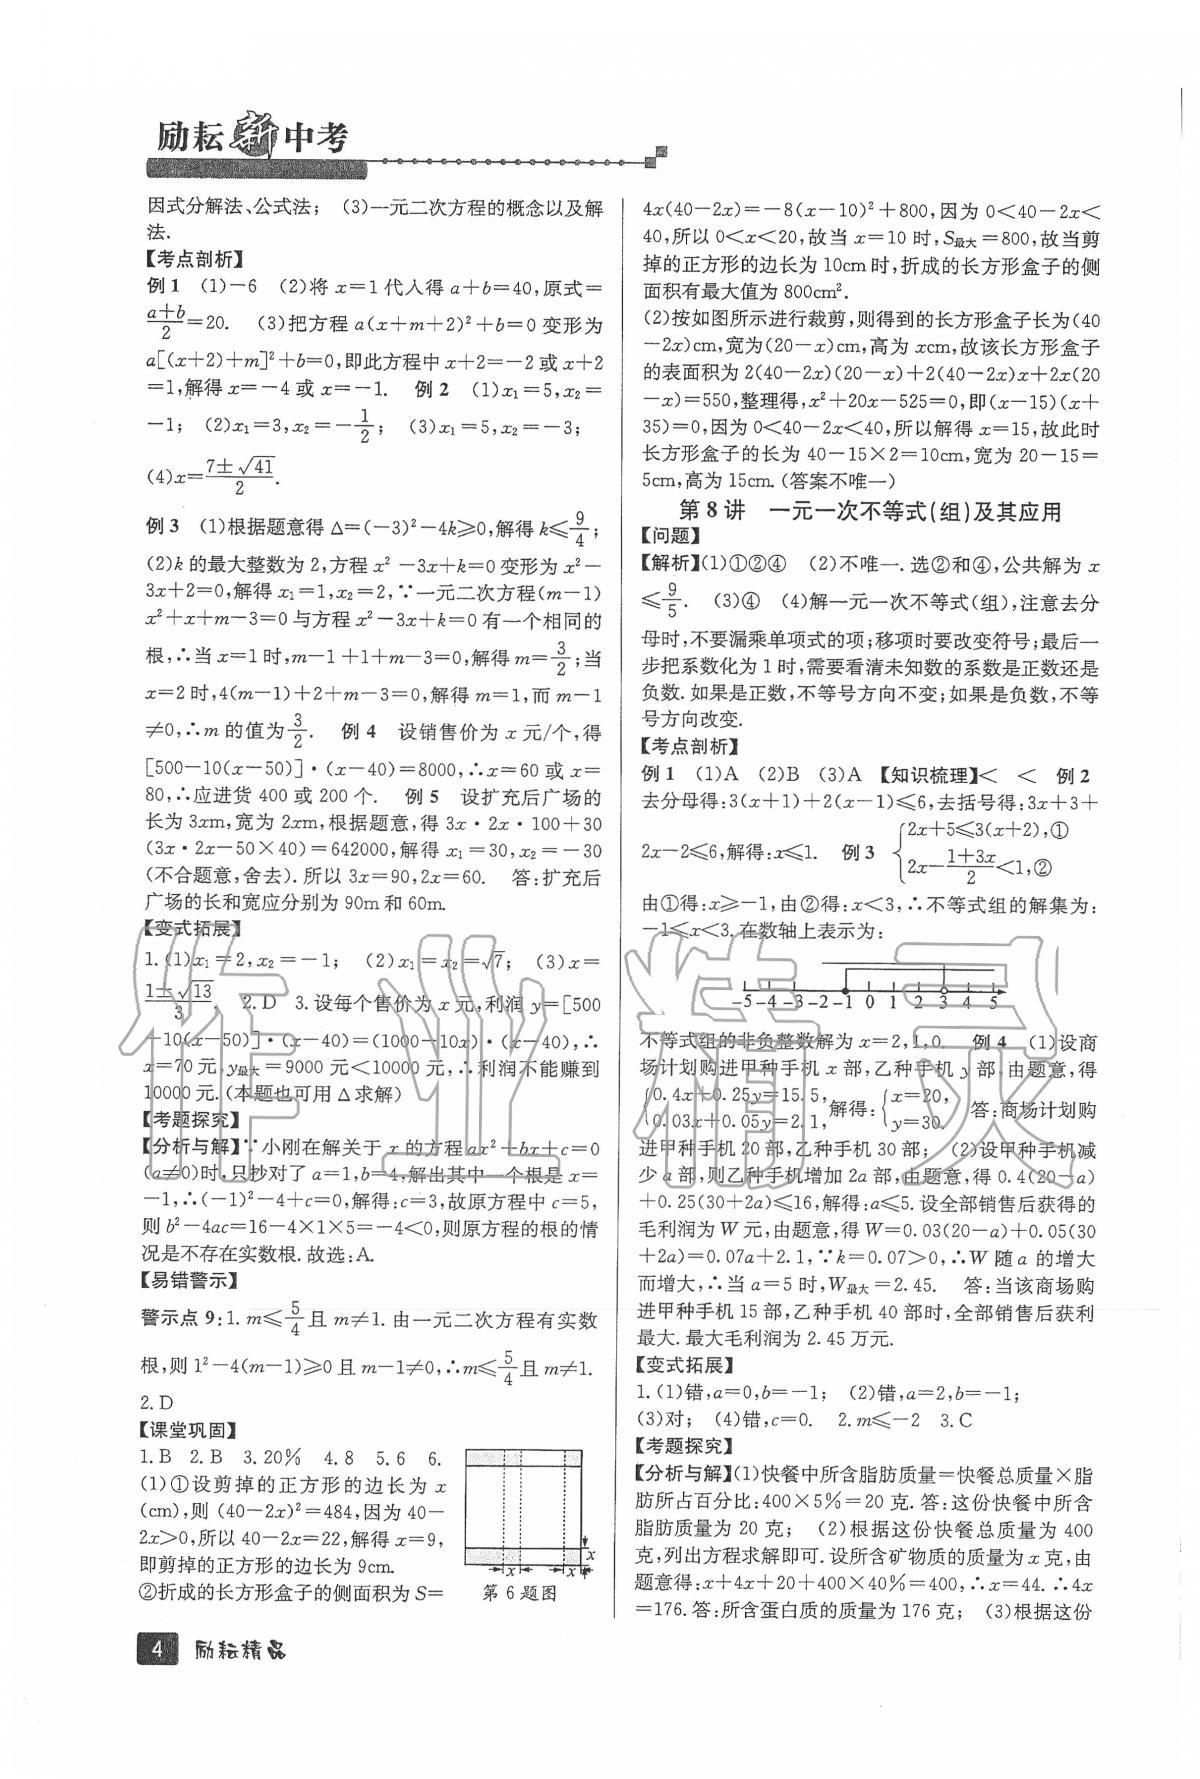 励耘新中考
因式分解法、公式法； (3)一元二次方程的概念以及解
法.
【考点剖析】
例1 (1)−6 (2)将 x=1 代人得 a+b=40,原式=
a+b/2=20. (3)把方程 a(x+m+2)²+b=0 变形为
a[(x+2)+m]²+b=0,即此方程中 x+2=−2 或 x+2
=1,解得 x=−4 或 x=−1. 例2 (1)x₁=5,x₂=
−1; (2)x₁=3,x₂=−1/2; (3)x₁=5,x₂=−3;
(4)x=7±√41/2.
例3 (1)根据题意得 Δ=(−3)²−4k⩾0,解得 k⩽9/4;
(2)k 的最大整数为 2,方程 x²−3x+k=0 变形为 x²−
3x+2=0,解得 x₁=1,x₂=2,∵一元二次方程(m−1)
x²+x+m−3=0 与方程 x²−3x+k=0 有一个相同的
根,∴当 x=1 时,m−1+1+m−3=0,解得 m=3/2;当
x=2 时,4(m−1)+2+m−3=0,解得 m=1,而 m−1
≠0,∴m 的值为3/2. 例4 设销售价为 x 元/个,得
[500−10(x−50)]·(x−40)=8000,∴x=60 或 x=
80,∴应进货 400 或 200 个. 例5 设扩充后广场的
长为 3xm,宽为 2xm,根据题意,得 3x·2x·100+30
(3x·2x−50×40)=642000,解得 x₁=30,x₂=−30
(不合题意,舍去).所以 3x=90,2x=60. 答:扩充后
广场的长和宽应分别为 90m 和 60m.
【变式拓展】
1.(1)x₁=2,x₂=−1; (2)x₁=x₂=√7; (3)x=
1±√13/3. 2.D 3.设每个售价为 x 元,利润 y=[500
−10(x−50)]·(x−40)=(1000−10x)·(x−40),∴
x=70 元,y最大=9000 元<10000 元,∴利润不能赚到
10000 元.(本题也可用 Δ 求解)
【考题探究】
【分析与解】∵小刚在解关于 x 的方程 ax²+bx+c=0
(a≠0)时,只抄对了 a=1,b=4,解出其中一个根是 x=
−1,∴(−1)²−4+c=0,解得:c=3,故原方程中 c=5,
则 b²−4ac=16−4×1×5=−4<0,则原方程的根的情
况是不存在实数根.故选:A.
【易错警示】
警示点 9:1. m⩽5/4且 m≠1. 由一元二次方程有实数
根,则 1²−4(m−1)⩾0 且 m−1≠0,∴m⩽5/4且 m≠1.
2.D
【课堂巩固】
1.B 2.B 3.20% 4.8 5.6 6.
(1)①设剪掉的正方形的边长为 x
(cm),则 (40−2x)²=484,因为 40−
2x>0,所以 40−2x=22,解得 x=9,
即剪掉的正方形的边长为 9cm.
②折成的长方形盒子的侧面积为 S=
x
x x
第 6 题图
4x(40−2x)=−8(x−10)²+800,因为 0<40−2x<
40,所以 0<x<20,故当 x=10 时,S最大=800,故当剪
掉的正方形的边长为 10cm 时,折成的长方形盒子的侧
面积有最大值为 800cm².
(2)按如图所示进行裁剪,则得到的长方形盒子长为(40
−2x)cm,宽为(20−x)cm,高为 xcm,故该长方形盒子
的表面积为 2(40−2x)(20−x)+2(40−2x)x+2x(20
−x)=550,整理得,x²+20x−525=0,即(x−15)(x+
35)=0,因为 0<40−2x<40,所以解得 x=15,故此时
长方形盒子的长为 40−15×2=10cm,宽为 20−15=
5cm,高为 15cm.(答案不唯一)
第 8 讲 一元一次不等式(组)及其应用
【问题】
【解析】(1)①②④ (2)不唯一. 选②和④,公共解为 x
⩽9/5. (3)④ (4)解一元一次不等式(组),注意去分
母时,不要漏乘单项式的项;移项时要改变符号;最后一
步把系数化为 1 时,需要看清未知数的系数是正数还是
负数.如果是正数,不等号方向不变;如果是负数,不等
号方向改变.
【考点剖析】
例1 (1)A (2)B (3)A 【知识梳理】< < 例2
去分母得:3(x+1)+2(x−1)⩽6,去括号得:3x+3+
2x−2⩽6,解得:x⩽1. 例3 {2x+5⩽3(x+2),① 2x−1+3x/2<1,②
由①得:x⩾−1,由②得:x<3,∴不等式组的解集为:
−1⩽x<3.在数轴上表示为:
−5 −4 −3 −2 −1 0 1 2 3 4 5
不等式组的非负整数解为 x=2,1,0. 例4 (1)设商
场计划购进甲种手机 x 部,乙种手机 y 部,由题意,得
{0.4x+0.25y=15.5, 0.03x+0.05y=2.1, 解得:{x=20, y=30. 答:商场计划购
进甲种手机 20 部,乙种手机 30 部; (2)设甲种手机减
少 a 部,则乙种手机增加 2a 部,由题意,得 0.4(20−a)
+0.25(30+2a)⩽16,解得:a⩽5.设全部销售后获得的
毛利润为 W 元,由题意,得 W=0.03(20−a)+0.05(30
+2a)=0.07a+2.1,∵k=0.07>0,∴W 随 a 的增大
而增大,∴当 a=5 时,W最大=2.45. 答:当该商场购
进甲种手机 15 部,乙种手机 40 部时,全部销售后获利
最大.最大毛利润为 2.45 万元.
【变式拓展】
1.(1)错,a=0,b=−1; (2)错,a=2,b=−1;
(3)对; (4)错,c=0. 2.m⩽−2 3.C
【考题探究】
【分析与解】(1)快餐中所含脂肪质量=快餐总质量×脂
肪所占百分比:400×5%=20 克.答:这份快餐中所含
脂肪质量为 20 克; (2)根据这份快餐总质量为 400
克,列出方程求解即可.设所含矿物质的质量为 x 克,由
题意得:x+4x+20+400×40%=400,∴x=44.∴4x
=176.答:所含蛋白质的质量为 176 克; (3)根据这份
4 励耘精品
作业精灵